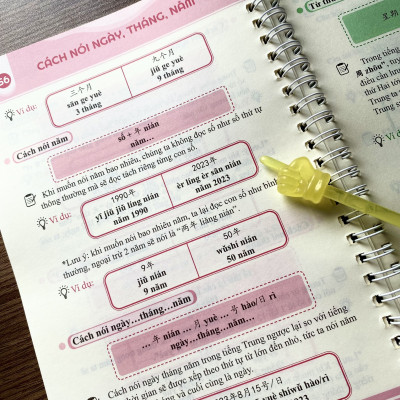 56
CÁCH NÓI NGÀY, THÁNG, NĂM
Ví dụ:
三个月
sān ge yuè
3 tháng
九个月
jiǔ ge yuè
9 tháng
Cách nói năm
số + 年 nián
năm...
Khi muốn nói năm bao nhiêu, chúng ta không đọc số như số thứ tự
thông thường mà sẽ đọc tách riêng từng con số.
Ví dụ:
1990年
yī jiǔ jiǔ líng nián
năm 1990
2023年
èr líng èr sān nián
năm 2023
*Lưu ý: khi muốn nói bao nhiêu năm, ta lại đọc con số như bình
thường, ngoại trừ 2 năm sẽ nói là “两年 liǎng nián”.
Ví dụ:
9年
jiǔ nián
9 năm
50年
wǔshí nián
50 năm
Cách nói ngày...tháng...năm
... 年 nián ... 月 yuè ... 号 hào/日 rì
ngày...tháng...năm...
Cách nói ngày tháng năm trong tiếng Trung ngược lại so với tiếng
thời gian sẽ được xếp theo thứ tự từ lớn đến nhỏ, tức ta nói năm
và cuối cùng là ngày.
2023年8月15号/日
yuè shíwǔ hào/rì
Từ
星期
Trong tiếng
周 zhōu
điều cần
thứ Hai
Trung